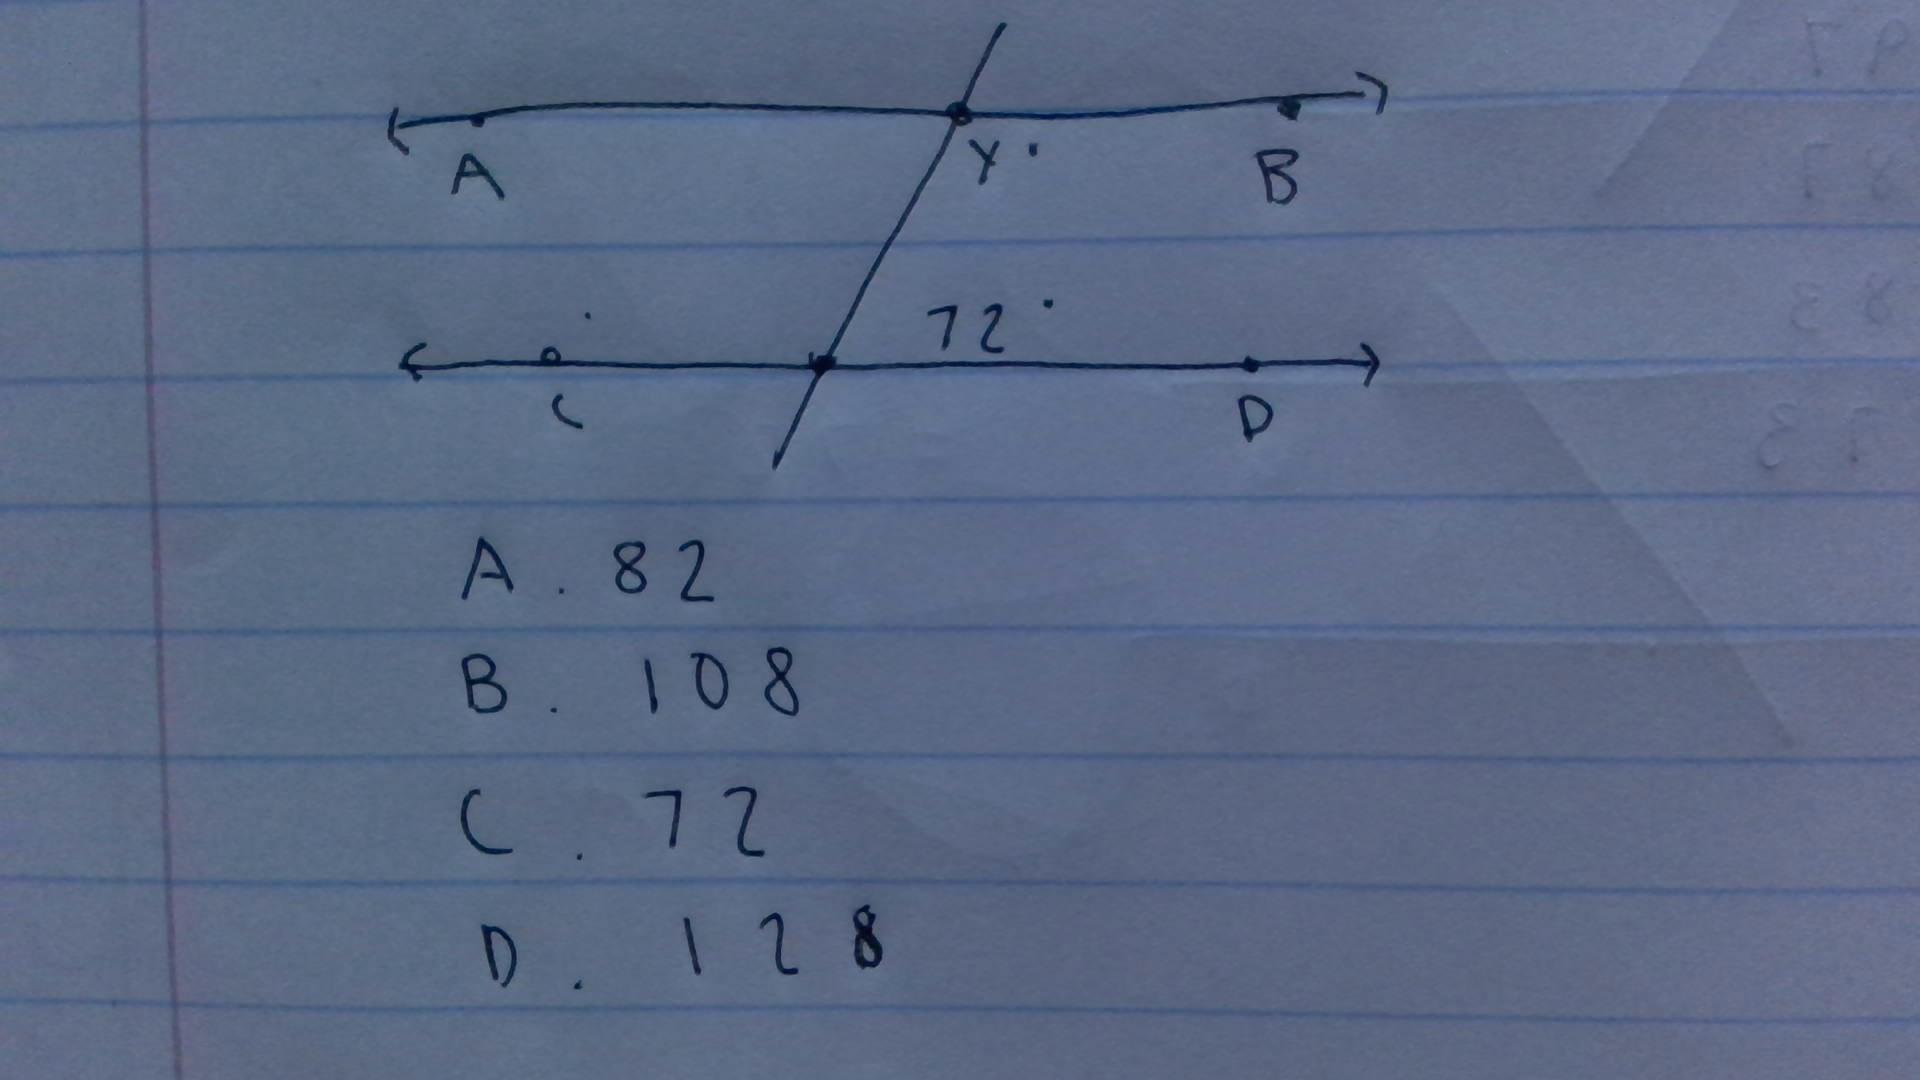 Y°
A B
72°
C D
A. 82
B. 108
C. 72
D. 128